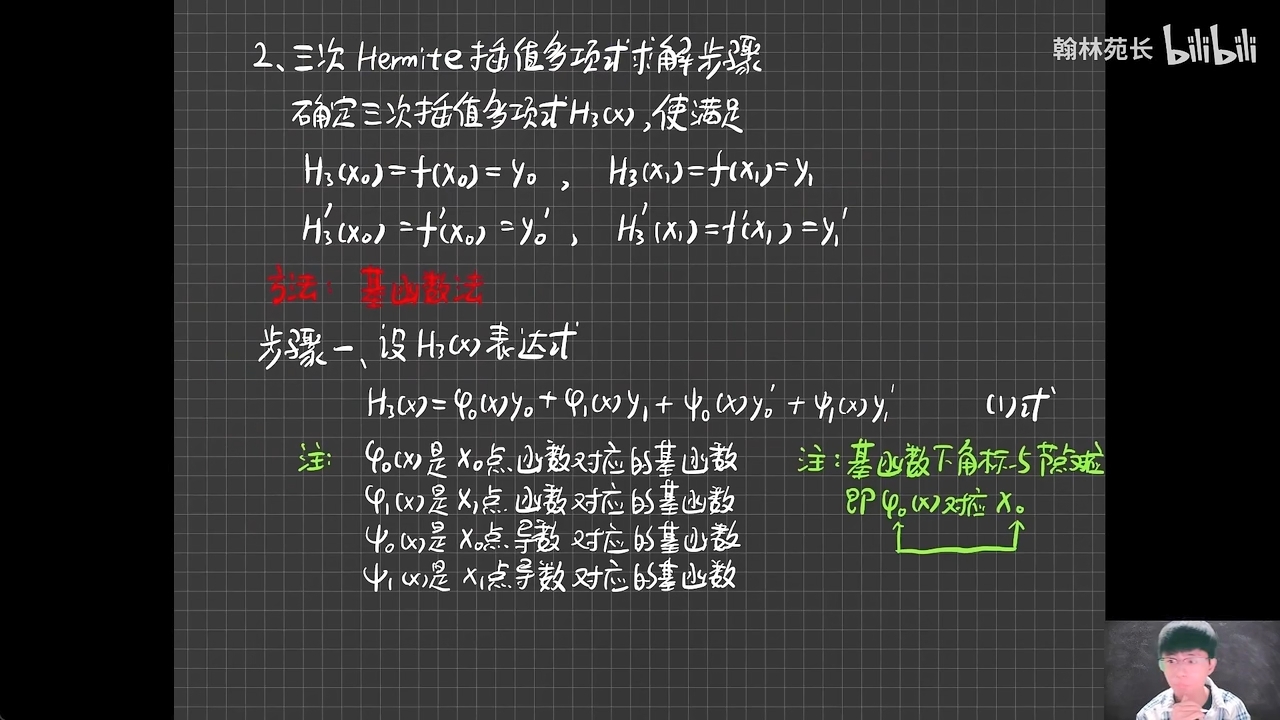 翰林苑长 bilibili
2、三次 Hermite 插值多项式求解步骤
确定三次插值多项式H₃(x),使满足
H₃(x₀)=f(x₀)=y₀ , H₃(x₁)=f(x₁)=y₁
H₃'(x₀)=f'(x₀)=y₀' , H₃'(x₁)=f'(x₁)=y₁'
方法: 基函数法
步骤一、设 H₃(x) 表达式
H₃(x)=φ₀(x)y₀+φ₁(x)y₁+ψ₀(x)y₀'+ψ₁(x)y₁' (1)式
注: φ₀(x)是 x₀点 函数对应的基函数
φ₁(x)是 x₁点 函数对应的基函数
ψ₀(x)是 x₀点 导数 对应的基函数
ψ₁(x)是 x₁点导数 对应的基函数
注:基函数下角标与节点对应
即φ₀(x)对应 x₀